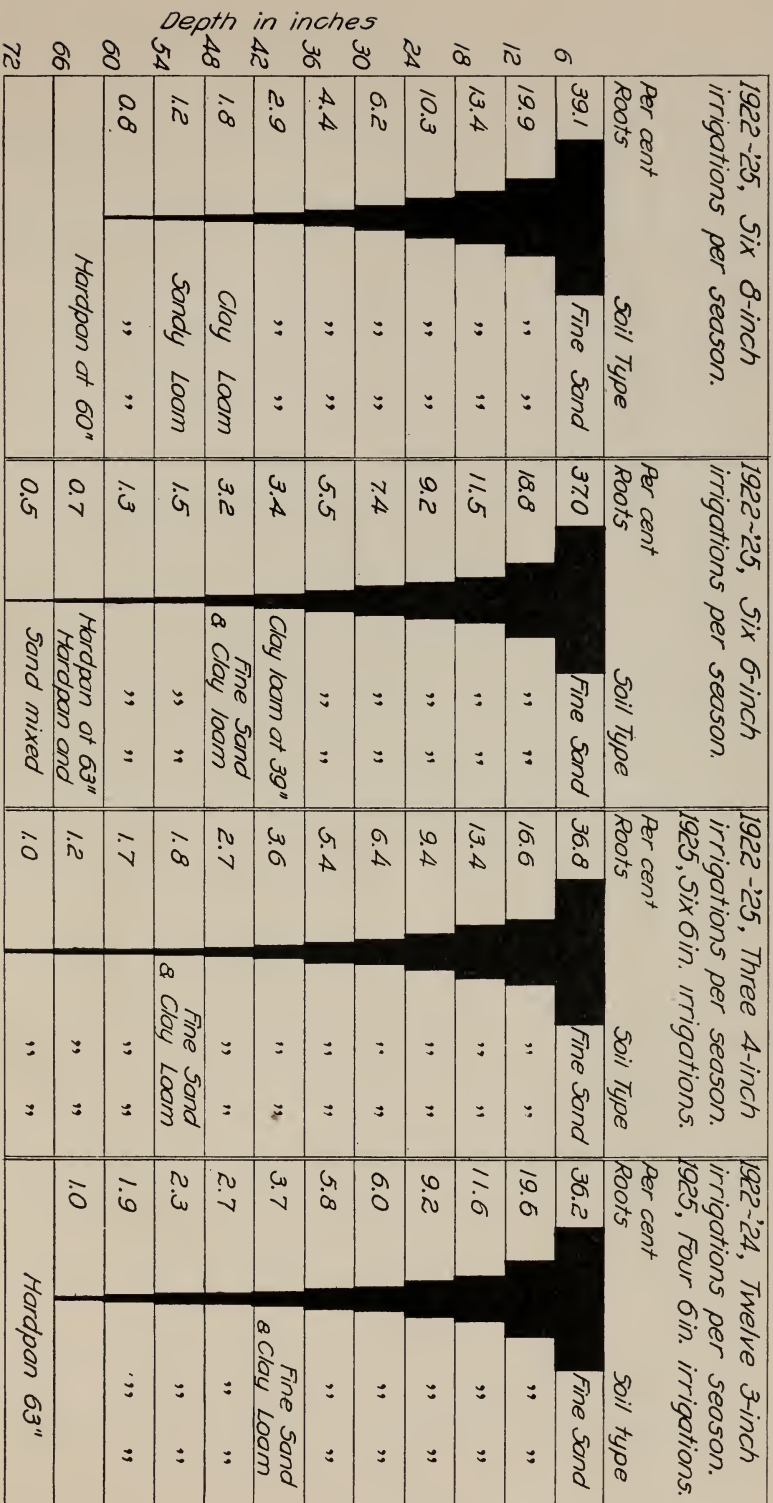 Depth in inches
6
12
18
24
30
36
42
48
54
60
66
72
1922-'25, Six 8-inch
irrigations per season.
Per cent
Roots
Soil Type
39.1 Fine Sand
19.9 " "
13.4 " "
10.3 " "
6.2 " "
4.4 " "
2.9 " "
1.8 Clay Loam
1.2 Sandy Loam
0.8 " "
Hardpan at 60"
1922-'25, Six 6-inch
irrigations per season.
Per cent
Roots
Soil Type
37.0 Fine Sand
18.8 " "
11.5 " "
9.2 " "
7.4 " "
5.5 " "
3.4 Clay loam at 39"
3.2 Fine Sand
& Clay loam
1.5 " "
1.3 " "
0.7 Hardpan at 63"
Hardpan and
0.5 Sand mixed
1922-'25, Three 4-inch
irrigations per season.
1925, Six 6 in. irrigations.
Per cent
Roots
Soil Type
36.8 Fine Sand
16.6 " "
13.4 " "
9.4 " "
6.4 " "
5.4 " "
3.6 " "
2.7 " "
1.8 Fine Sand
& Clay Loam
1.7 " "
1.2 " "
1.0 " "
1922-'24, Twelve 3-inch
irrigations per season.
1925, Four 6 in. irrigations.
Per cent
Roots
Soil type
36.2 Fine Sand
19.6 " "
11.6 " "
9.2 " "
6.0 " "
5.8 " "
3.7 Fine Sand
& Clay Loam
2.7 " "
2.3 " "
1.9 " "
1.0
Hardpan 63"